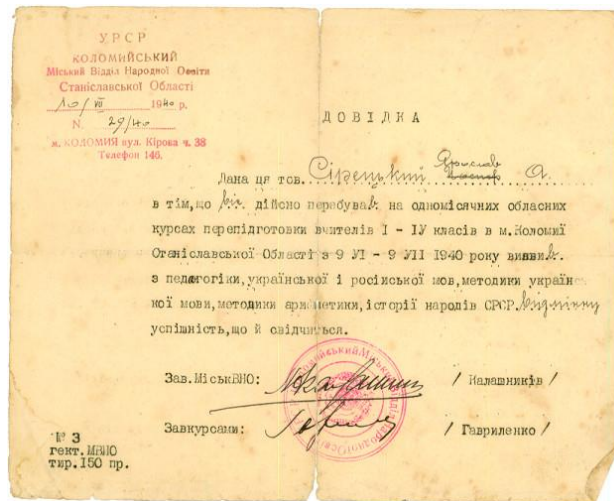 УРСР
КОЛОМИЙСЬКИЙ
Міський Відділ Народної Освіти
Станіславської Області
10/VII 1940 р.
N. 29/40
м. КОЛОМИЯ вул. Кірова ч. 38
Телефон 146.
ДОВІДКА
Дана ця тов. Сірецький Ярослав А.
в тім, що він дійсно перебував на одномісячних обласних
курсах перепідготовки вчителів I - IУ класів в м. Коломиї
Станіславської Області з 9 УІ - 9 УІІ 1940 року виявив
з педагогіки, української і російської мов, методики україн
кої мови, методики аритметики, історії народів СРСР. відмінну
успішність, що й свідчиться.
Зав. МіськВНО: / Калашників /
Завкурсами: / Гавриленко /
№ 3
гект. МВНО
тир. 150 пр.